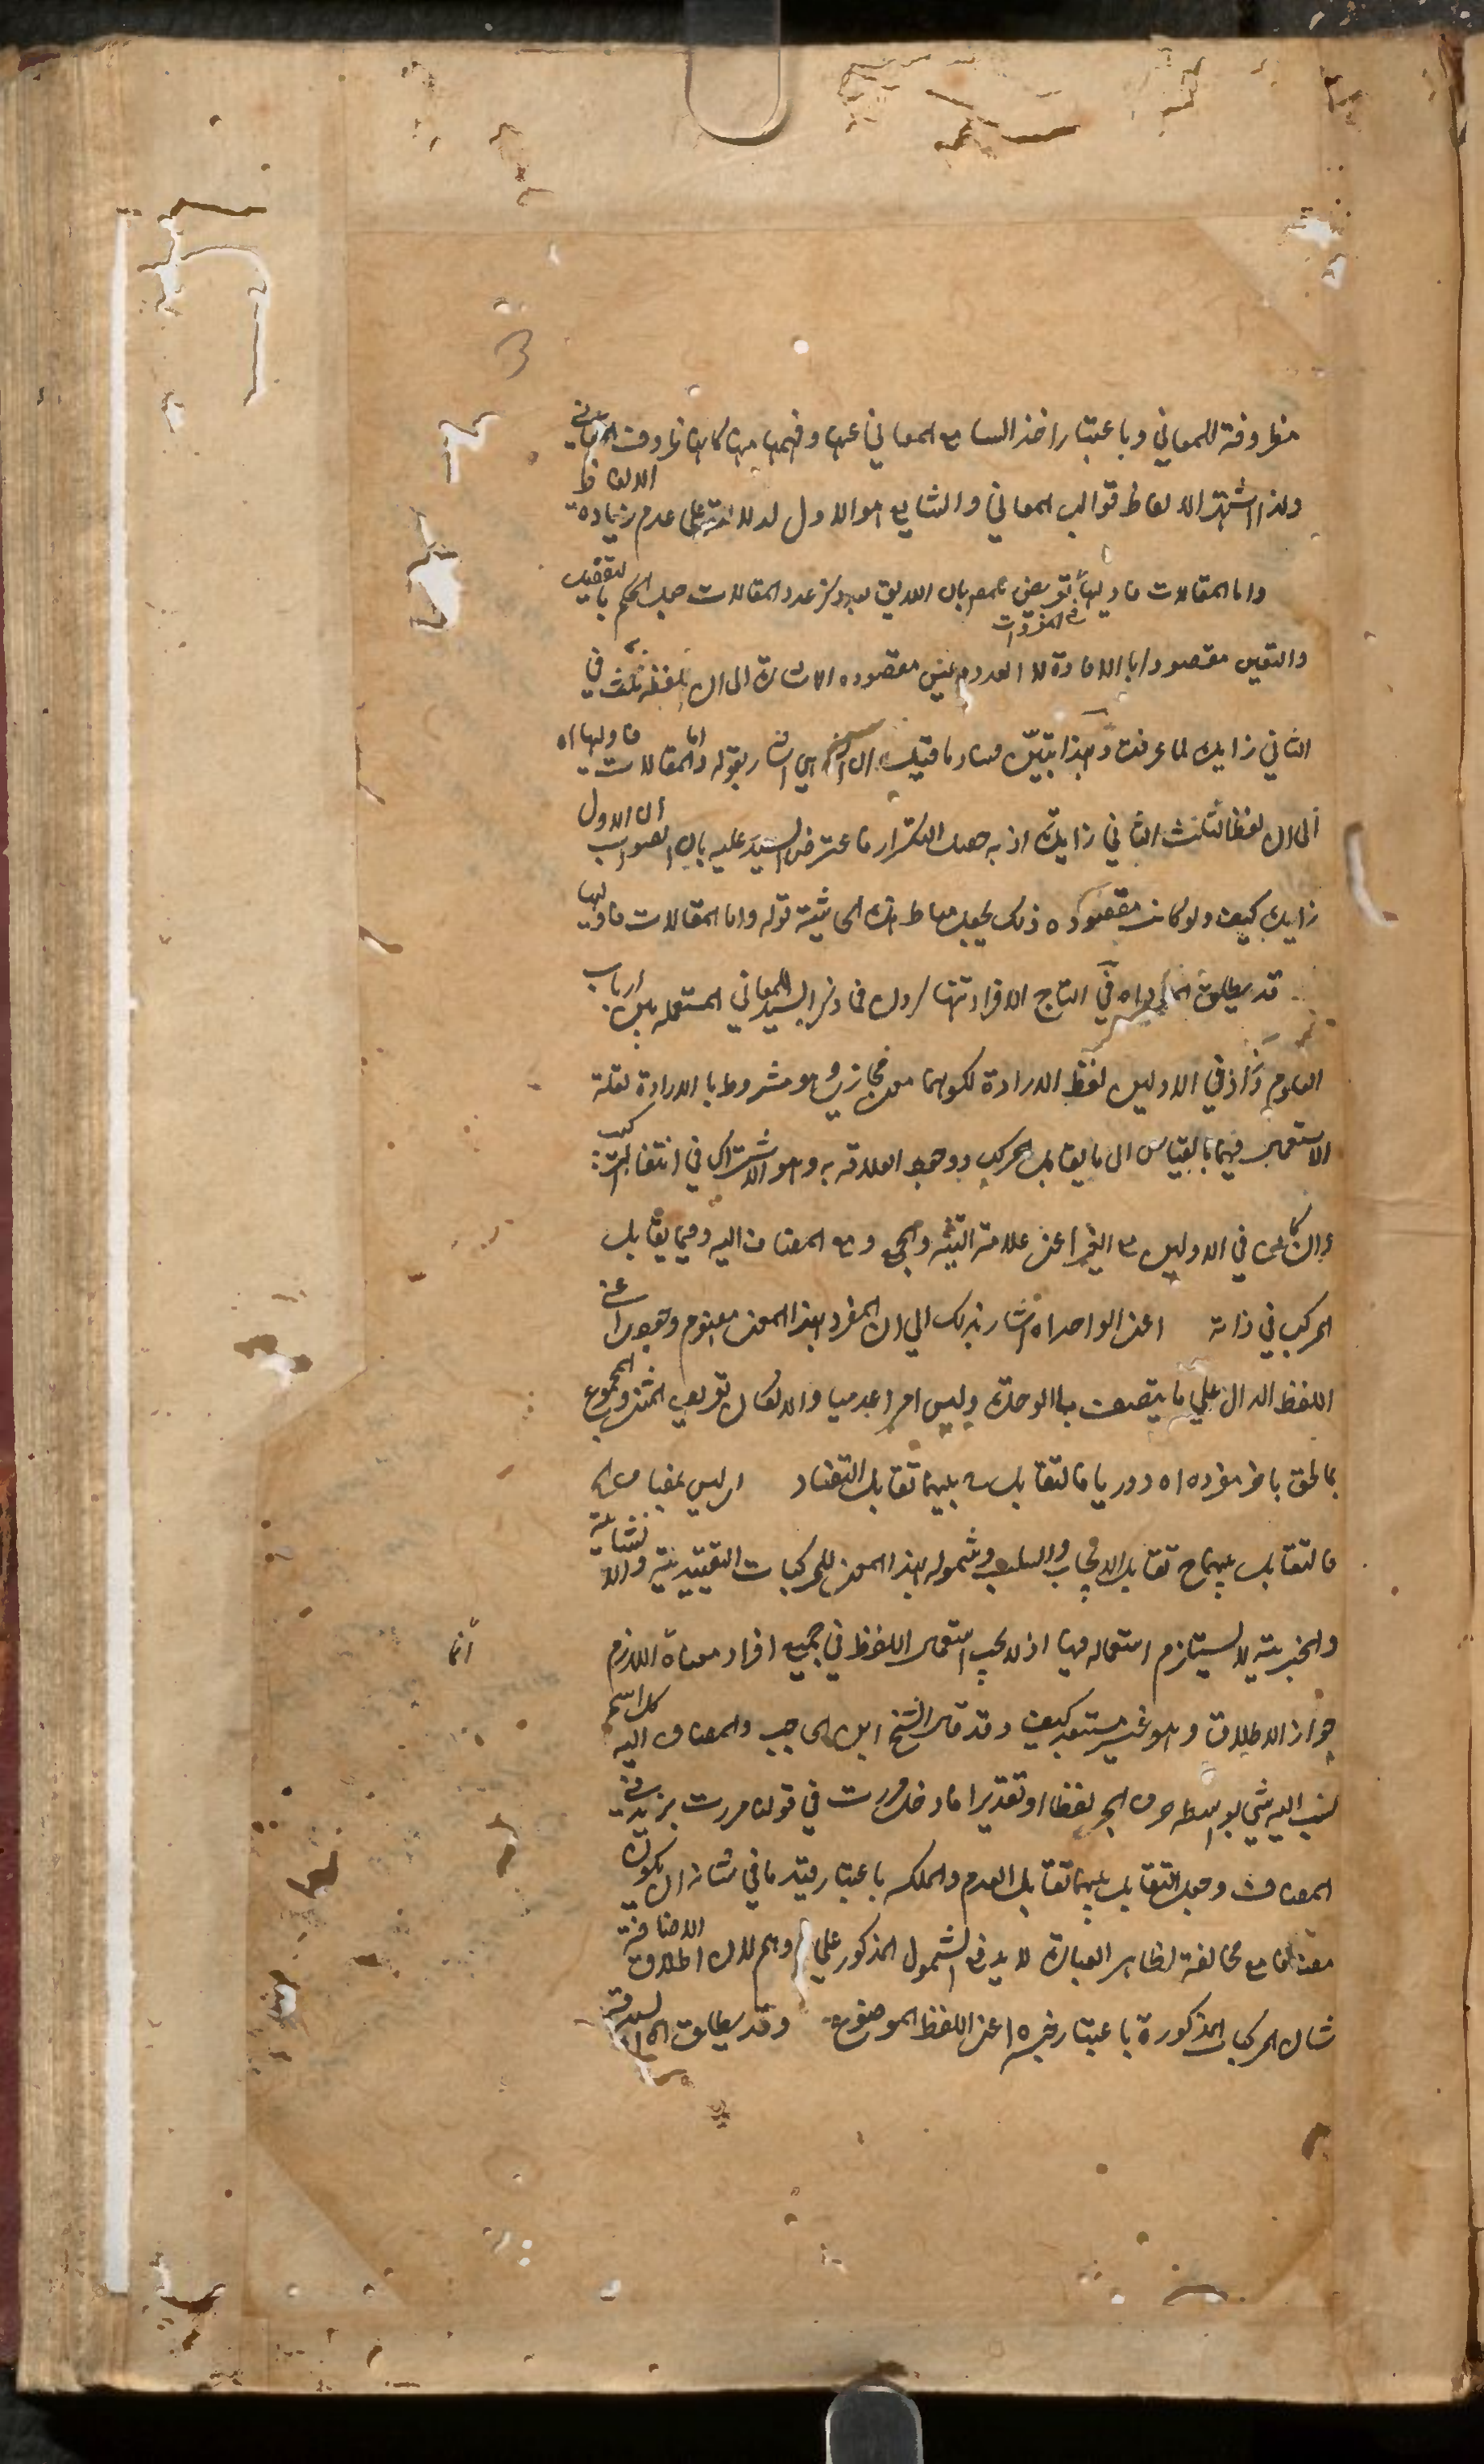 مظروفة للمعاني وباعتبار اخذ السامع المعاني عنها وفهمها منها كانها ظروف المعاني
ولذا اشتهر الالفاظ قوالب المعاني والشايع هو الاول لدلالته على عدم زيادة الالفاظ
واما المقالات فاوليها تعريض للمص بان اللايق بعد ذكر عدد المقالات جعل الحكم بالتفصيل
والتعين مقصودا بالافادة لا العدد في المفردات مقصوده الاشارة الى ان لفظه ثلث في
الثاني زايدة لما عرفت وبهذا تبين فساد ما قيل ان اشار بقوله واما المقالات فاوليها اه
الى ان لفظ الثلث الثاني زايدة اذ به حصل التكرار فاعترض السيد عليه بان الصواب ان الاول
زايدة كيف ولو كان مقصوده ذلك يجعل مناط هذه الحاشية قوله واما المقالات فاوليها
قد يطلق اه في التاج الافراد تنها كردن فما ذكر السيد المعاني المستعملة بين ارباب
العلوم وزاد في الاولين لفظ الارادة لكونهما معنى مجازي وهو مشروط بالارادة لقلة
الاستعمال فيهما بالقياس الى ما يقابل المركب ووجود العلاقه به وهو الاشتراك في انتفاء التركيب
وان كان في الاولين مع الغير اعنى علامة التثنية والجمع ومع المضاف اليه وفيما يقابل
المركب في ذاته اعنى الواحد اه اشار بذلك الى ان المفرد بهذا المعنى مفهوم وجودي اعني
اللفظ الدال على ما يتصف بالوحدة وليس امرا عدميا والا لكان تعريف المثنى والمجموع
بما لحق باخر مفرده اه دوريا فالتقابل بينهما تقابل التضاد اى ليس بمضاف اه
فالتقابل بينهما ح تقابل الايجاب والسلب وشموله بهذا المعنى للمركبات التقييدية والانشائية
والخبرية لا يستلزم استعماله فيها اذ لا يجب استعمال اللفظ في جميع افراد معناه اللازم انما
جواز الاطلاق وهو غير مستبعد كيف وقد قال الشيخ ابن الحاجب والمضاف اليه كل اسم
نسب اليه شي بواسطه حرف الجر لفظا او تقديرا فادخل مررت في قولك مررت بزيد في
المضاف وجعل التقابل بينهما تقابل العدم والملكه باعتبار قيد ما في شانه ان يكون
مضافا مع مخالفة لظاهر العبارة لا يدفع الشمول المذكور على وهم لان اطلاق الاضافة
شان المركبات المذكورة باعتبار غيره اعنى اللفظ الموضوع وقد يطلق